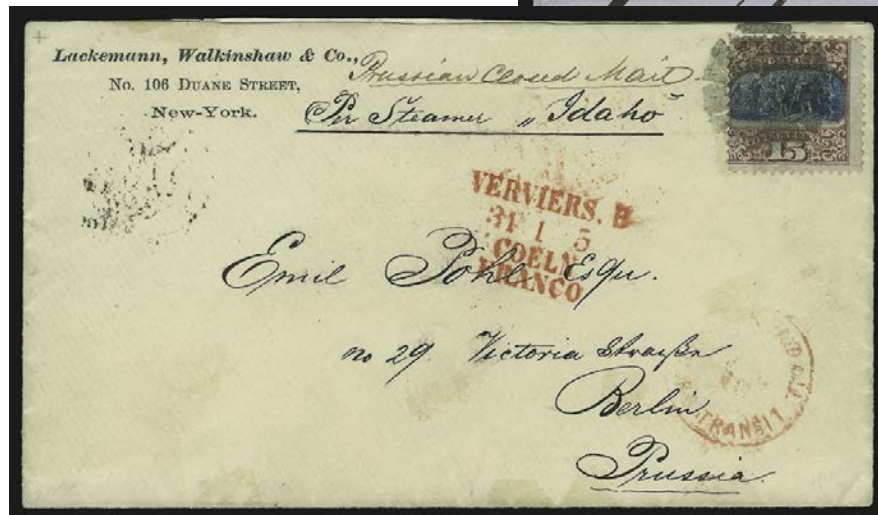 Lackemann, Walkinshaw & Co.,
No. 106 Duane Street,
New-York.
Prussian Closed Mail
Per Steamer „Idaho"
15
VERVIERS. B
31 1 5
COELN
FRANCO
Emil Pohl Esqu.
no 29 Victoria Straße
Berlin
Prussia.
TRANSIT